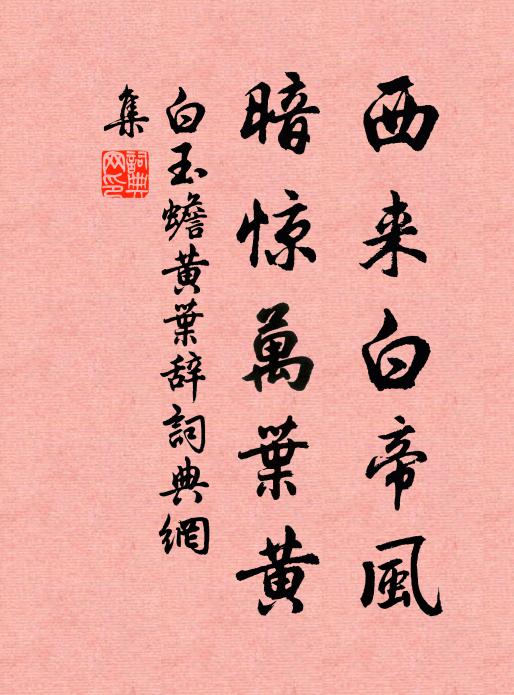 西来白帝風
暗惊萬葉黄
白玉蟾黄葉辞詞典網
集
詞典
网印